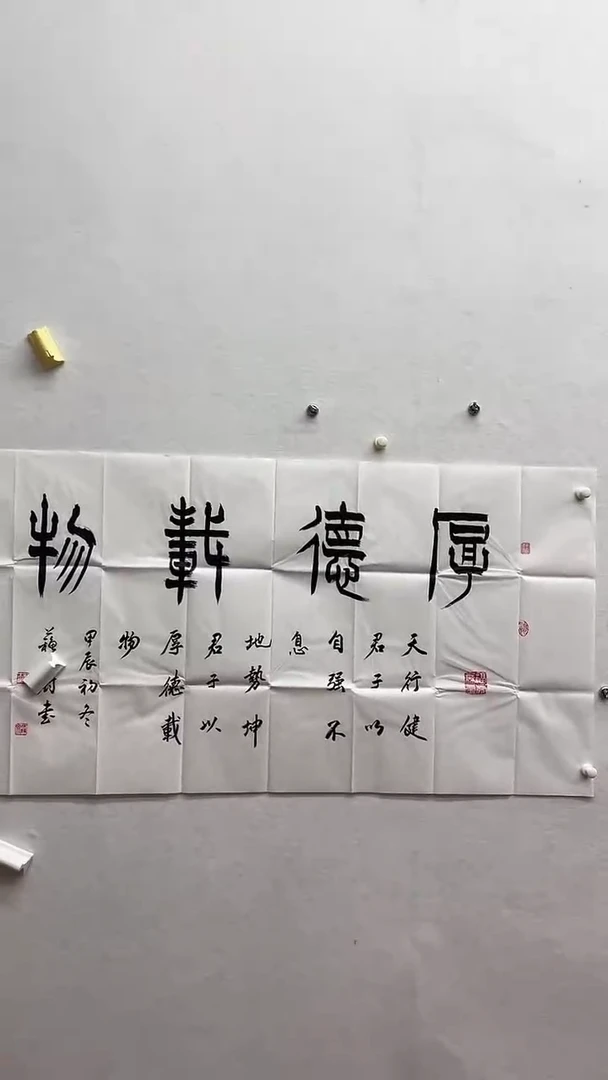 厚德載物
天行健
君子以
自强不
息
地勢坤
君子以
厚德載
物
甲辰初冬
蘇
書